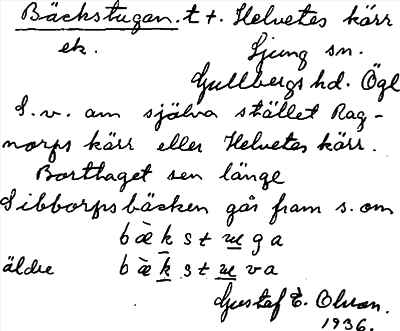 Bäckstugan. t. t. Helvetes kärr
ek. Ljung sn.
Gullbergs hd. Ögl
S. v. om själva stället Rag-
norps kärr eller Helvetes kärr.
Borttaget sen länge
Sibborps bäcken går fram s. om
b æ̀ k s t ɯ g a
äldre b æ̀ k s t ɯ v a
Gustaf E. Olsson.
1936.